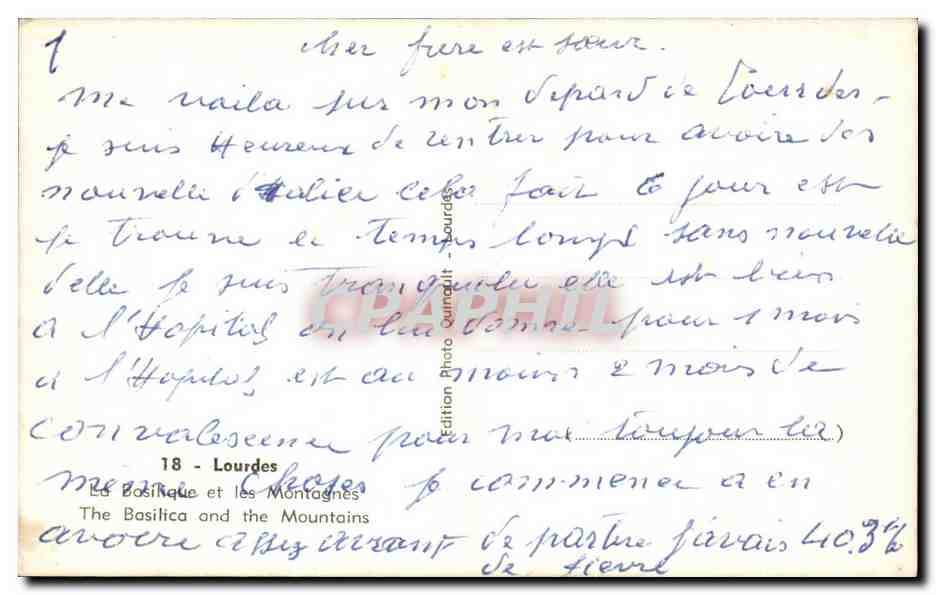 1
cher frere est sœur.
me voila sur mon depard de Lourdes -
je suis Heureux de rentrer pour avoire des
nouvelle d'Alice cela fait 6 jour est
je trouve le temps longt sans nouvelle
delle je suis tranquile elle est bien
a l'Hopital on lui donne pour 1 mois
a l'Hopital est au moins 2 mois de
convalescence pour moi toujour la)
meme choses je commence a en
avoire assez avant de partire j'avais 40.3
de fievre
18 - Lourdes
La Basilique et les Montagnes
The Basilica and the Mountains
Edition Photo Quinault - Lourdes
CPAPHIL